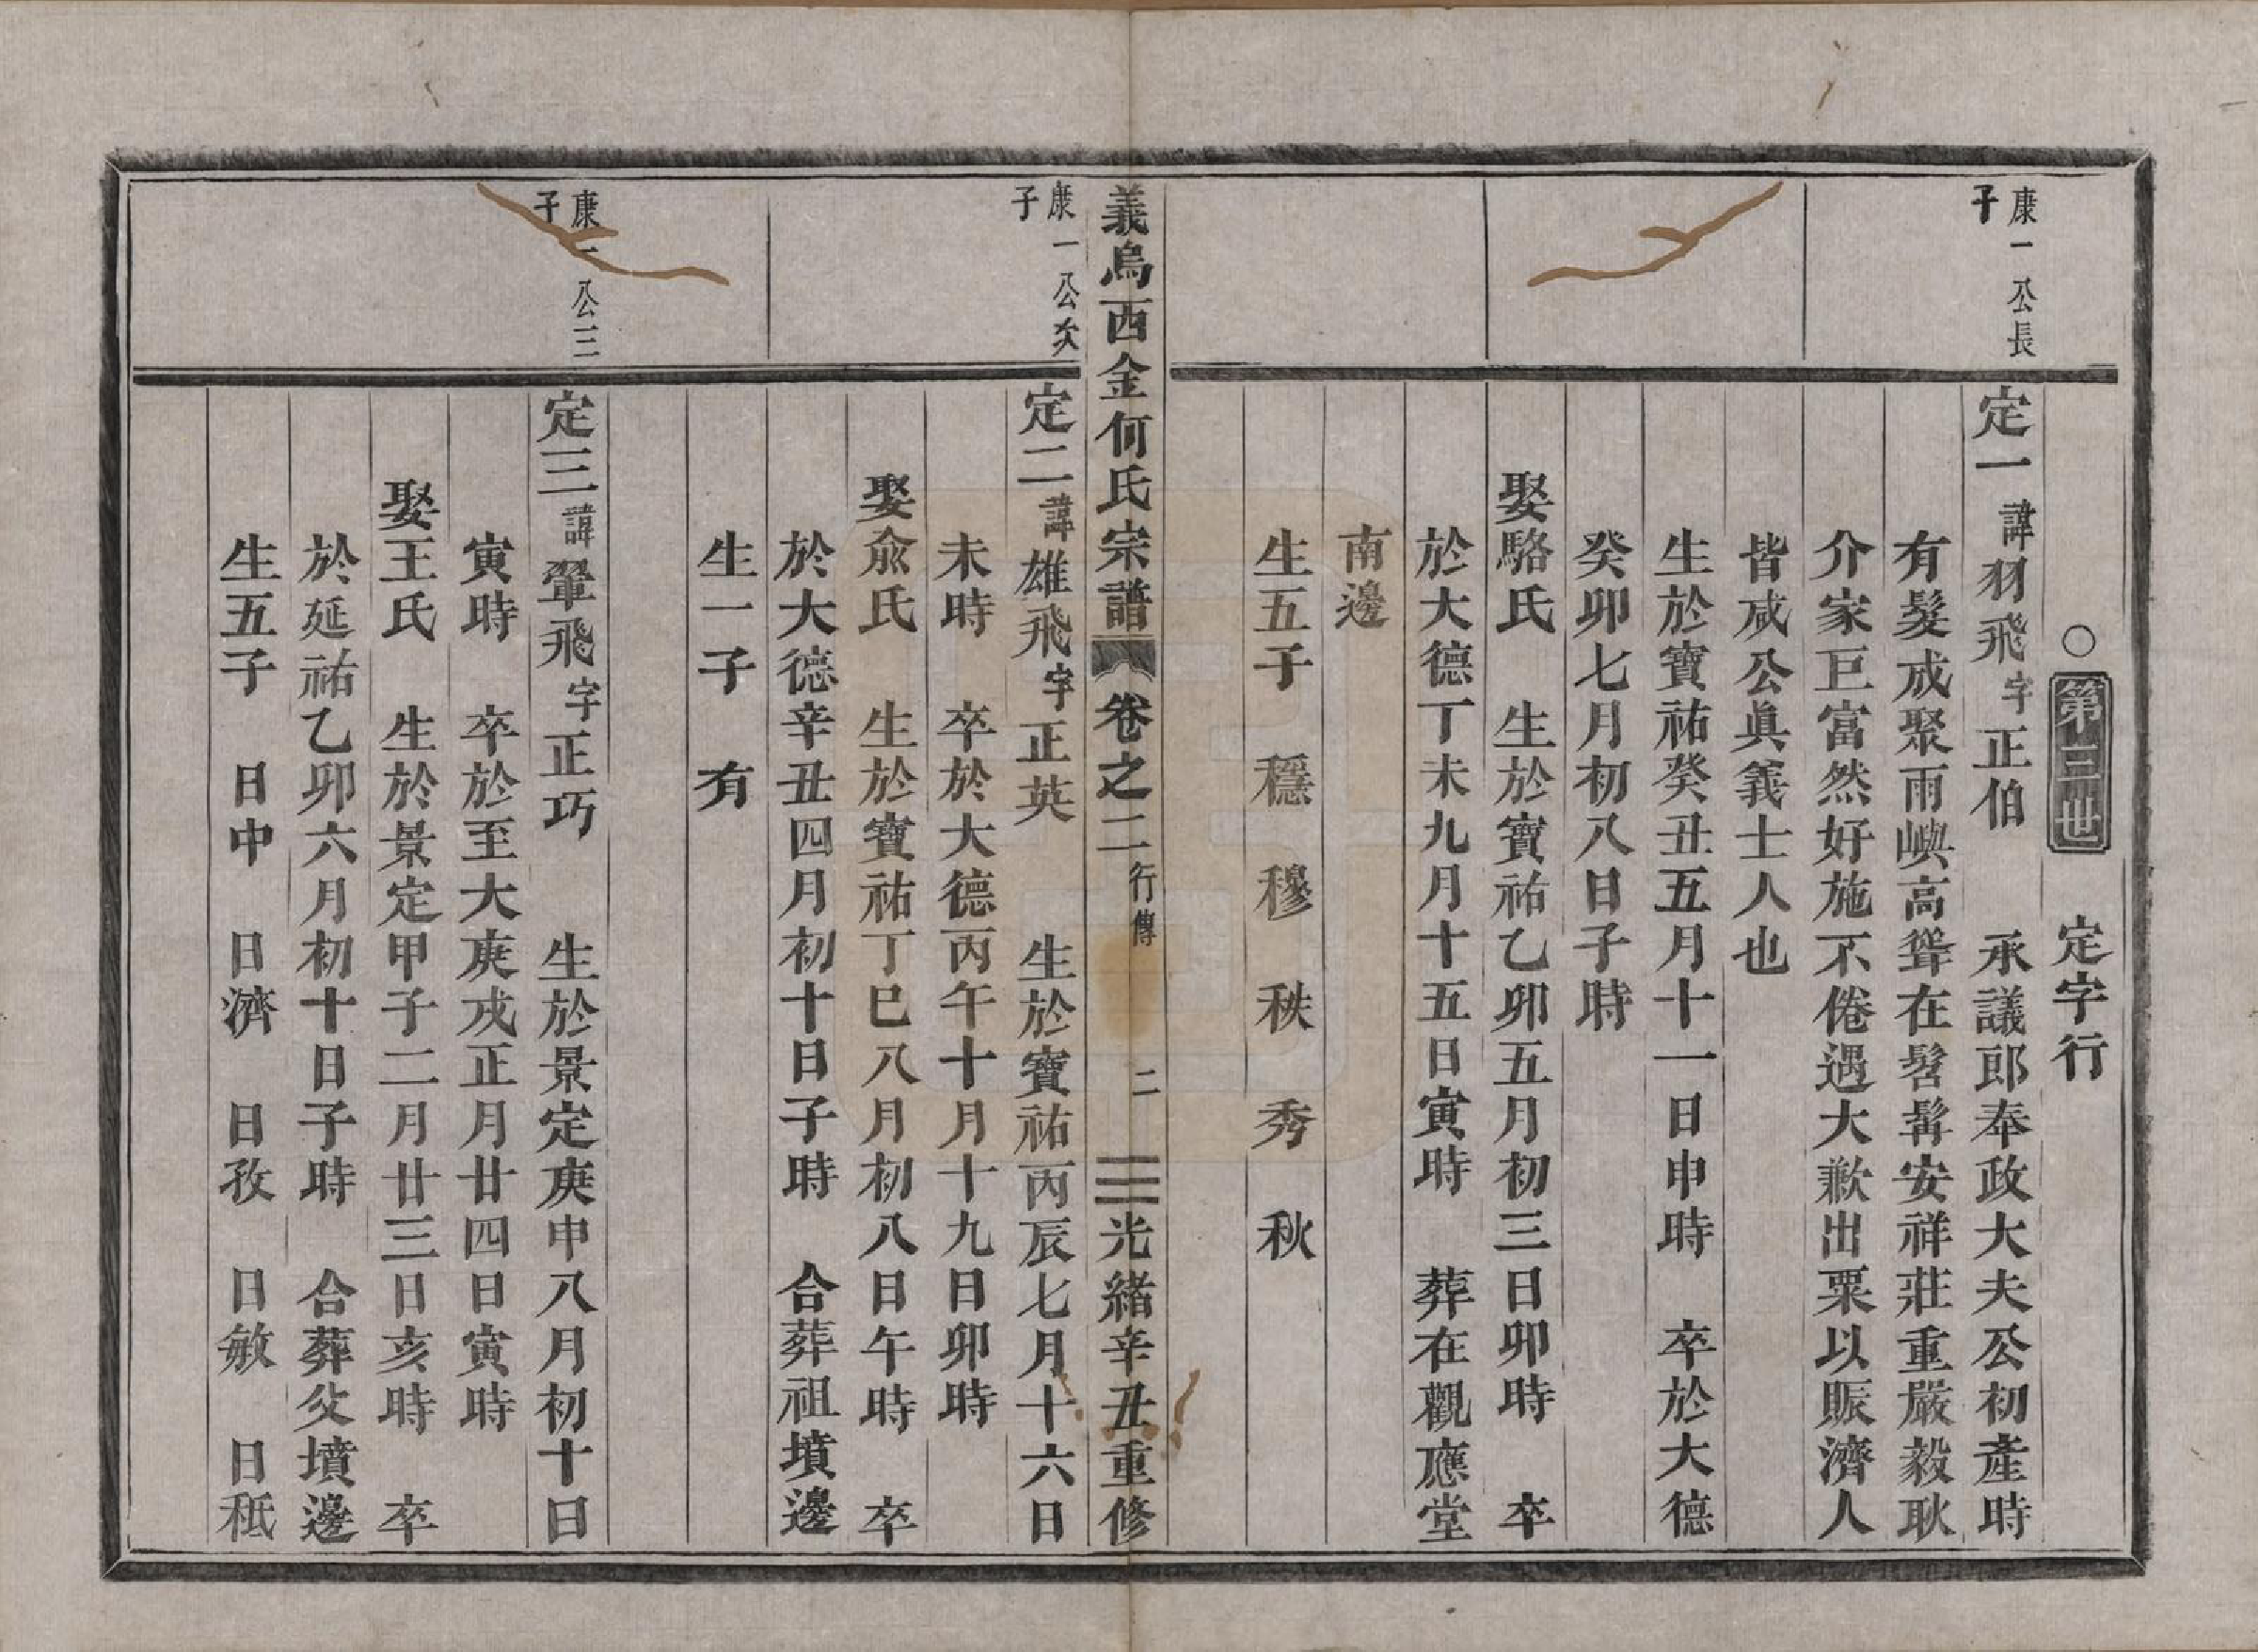 ○第三世 定字行
康一公長
子
定一諱羽飛字正伯 承議郎奉政大夫公初產時
有髮成聚雨嶼高聳在髻髯安祥莊重嚴毅耿
介家巨富然好施不倦遇大歉出粟以賑濟人
皆咸公眞義士人也
生於寶祐癸丑五月十一日申時 卒於大德
癸卯七月初八日子時
娶駱氏 生於寶祐乙卯五月初三日卯時 卒
於大德丁未九月十五日寅時 葬在觀應堂
南邊
生五子 穩 穆 秩 秀 秋
義烏西金何氏宗譜 卷之二 行傳 二 光緒辛丑重修
康一公次
子
定二諱雄飛字正英 生於寶祐丙辰七月十六日
未時 卒於大德丙午十月十九日卯時
娶俞氏 生於寶祐丁巳八月初八日午時 卒
於大德辛丑四月初十日子時 合葬祖墳邊
生一子 有
康一公三
子
定三諱翬飛字正巧 生於景定庚申八月初十日
寅時 卒於至大庚戌正月廿四日寅時
娶王氏 生於景定甲子二月廿三日亥時 卒
於延祐乙卯六月初十日子時 合葬父墳邊
生五子 日中 日濟 日孜 日敏 日秪